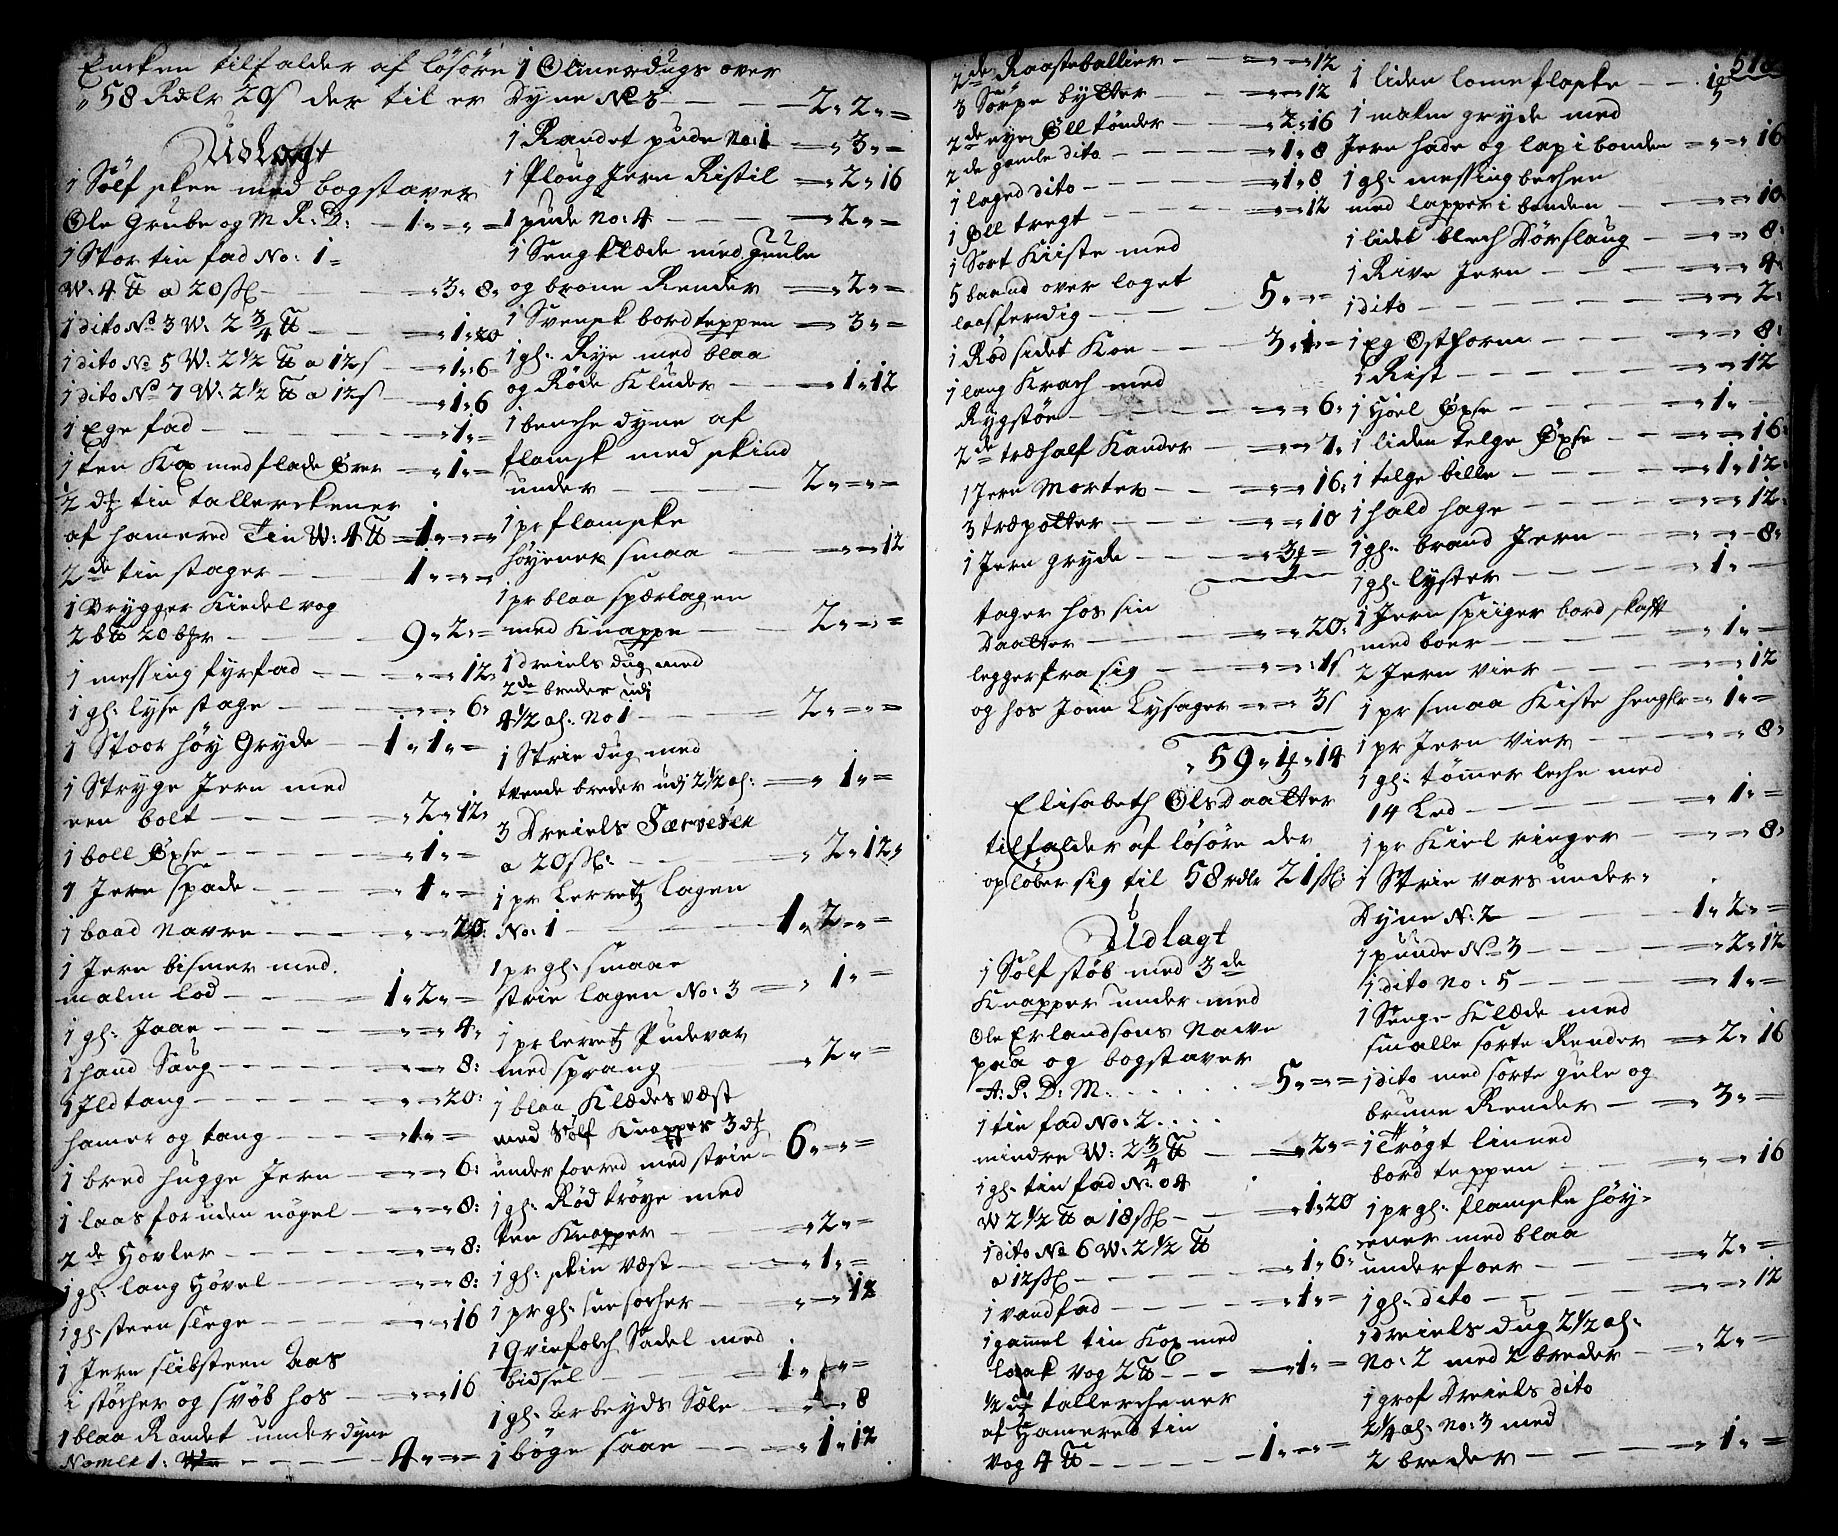 Encken tilfalder af løsøre
" 58 Rdlr 20 s der til er
Udlagt
1 Sølf skee med bogstaver
Ole Grube og M R: D: - 1 " = " =
1 Stor tin fad No: 1 =
W: 4 ℔ a 20 s - " 3 " 8 "
1 dito No 3 W: 2 3/4 ℔ - " 1 " 20
1 dito No 5 W: 2 1/2 ℔ a 12 s - " 1 " 6
1 dito No 7 W: 2 1/2 ℔ a 12 s - " 1 " 6
1 Ege fad - " 1 " =
1 ten Kop med flade Ører - " 1 " =
2 dt tin tallerckener
af hamered Tin W: 4 ℔ = 1 " = " =
2de tin stager - 1 " = " =
1 Brygger Kiedel vog
2 b℔ 20 - 9 " 2 " =
1 messing fyrfad - " = " 12
1 gl: lyse stage - " = " 6
1 Stoor høy Gryde - 1 " 1 " =
1 Stryge Jern med
een bolt - " 2 " 12
1 boll Øxse - " 1 " =
1 Jern spade - " 1 " =
1 baad Navre - " = " 20
1 Jern bismer med
malm lod - 1 " 2 " =
1 gl: Jaar - " = " 4
1 hand Saug - " = " 8:
1 Ildtang - " = " 20:
hamer og tang - " 1 " =
1 bred hugge Jern - " = " 6:
1 laas foruden nøgel - " = " 8:
2de Høvler - " = " 8:
1 gl: lang Høvel - " = " 8:
1 gl: steen slege - " = " 16
1 Jern slibsteen Aas
i støcher og svøb hos - " = " 16
1 blaa Randet underdyne
Nomer 1: - 4 " = " =
1 Olmerdugs over
Dyne No 3 - 2 " 2 " =
1 Randet pude No: 1 - " 3 " =
1 Ploug Jern Ristil - " 2 " 16
1 pude No: 4 - " 2 " =
1 Sengklæde med guule
og brone Render - " 2 " =
1 Svensk bordteppen - " 3 " =
1 gl: Rye med blaa
og Røde Kluder - " 1 " 12
1 benche dyne af
flamsk med skind
under - 2 " = " =
1 pr flamske
høyener smaa - " = " 12
1 pr blaa sperlagen
med Knappe - 2 " = " =
1 dreiels dug med
2de breder udj
4 1/2 al: No 1 - 2 " = " =
1 Strie dug med
tvende breder udj 2 1/2 al: = " 1 " =
3 Dreiels Servieter
a 20 s: - " 2 " 12
1 pr Lerretz lagen
No: 1 - 1 " 2 " =
1 pr gl: smaae
strie lagen No: 3 - " 1 " =
1 pr lerretz Pudevar
med sprang - " 2 " =
1 blaa Klædes væst
med Sølf Knapper 3 dt
underforred med strie - 6 " = " =
1 gl: Rød trøye med
ten Knapper - " 2 " =
1 gl: skin væst - " 1 " =
1 pr gl: - " = " 12
1 Qvinfolch Sadel med
bidsel - 1 " = " =
1 gl: Arbeyds Sæle - " = " 8
1 bøge saae - " 1 " 12
2de Raasteballier - = " = " 12
3 Sørpe bytter - = " = " 12
2de eye Øll tønder - = " 2 " 16
2de gamle dito - " 1 " 8
1 laged dito - " 1 " 8
1 Øll tregt - = " = " 12
1 Sort Kiiste med
5 baand over laget
laasferdig - 5 " = " =
1 Rød sidet Koe - 3 " 1 " =
1 lang Krach med
Rygstøe - = " = " 6
2de træ half Kander - = " = " 7
1 Jern Morter - = " = " 16
3 træpotter - = " = " 10
1 Jern gryde - = " 3 " =
tager hos sin
Daatter - = " = " 20:
legger fra sig - = " = " 1 s
og hos Joen Lysager = " = " 3 s
" 59 " 1 " 14
Elisabeth Olsdaatter
tilfalder af løsøre der
opløber sig til 58 rdlr 21 s:
Udlagt
1 Sølf støb med 3de
Knapper under med
Ole Erlandsons Navn
paa og bogstaver
A: P: D: M: - 5 " = " =
1 tin fad No: 2
mindre W: 2 3/4 ℔ - = " 2 " =
1 gl: tin fad No 4
W 2 1/2 ℔ a 18 s - = " 1 " 20
1 dito No 6 W: 2 1/2 ℔
a 12 s - = " 1 " 6
1 vandfad - = " 1 " =
1 gamel tin Kop med
laak vog 2 ℔ - = " 1 " =
1/2 dt tallerchener
af Hamered tin
vog 4 ℔ - 1 " = " =
518
1 liden lomeflaske - 12
1 malm gryde med
Jern hade og lap i bonden = " = " 16
1 gl: messing bechen
med lapper i bonden - = " = " 10
1 lidet blech Dørslaug - = " = " 8
1 Rive Jern - = " = " 4
1 dito - = " = " 2
1 eg Ostform - = " = " 8
1 Rist - = " = " 12
1 Hoel Øxse - = " 1 " -
1 liden telge Øxse - = " = " 16
1 telge bille - = " 1 " 12
1 hald hage - = " = " 12
1 gl: brand Jern - = " = " 8
1 gl: lyster - = " 1 " -
1 Jern spiiger bord skafft
med boer - " 1 " =
2 Jern Vier - = " = " 12
1 pr smaa Kiste hengsler = " 1 " =
1 pr Jern Vier - = " = " 8
1 gl: tømmer leche med
14 Led - = " 1 " =
1 pr Kiel ringer - = " = " 8
1 Strie vars under
Dyne N: 2 - 1 " 2 " =
1 puude No 3 - = " 2 " 12
1 dito No: 5 - = " 1 " =
1 Senge Klæde med
smalle sorte Render - = " 2 " 16
1 dito med sorte gule og
brune Render - = " 3 " =
1 Trøgt linned
bord teppen - = " = " 16
1 pr gl: flamske høy-
ener med blaa
underfoer - = " 2 " =
1 gl: dito - = " = " 12
1 dreiels dug 2 1/2 al:
No: 2 med 2 breder - = " 2 " =
1 grof Dreiels dito
2 1/4 al: No: 3 med
2 breder - = " 1 " =